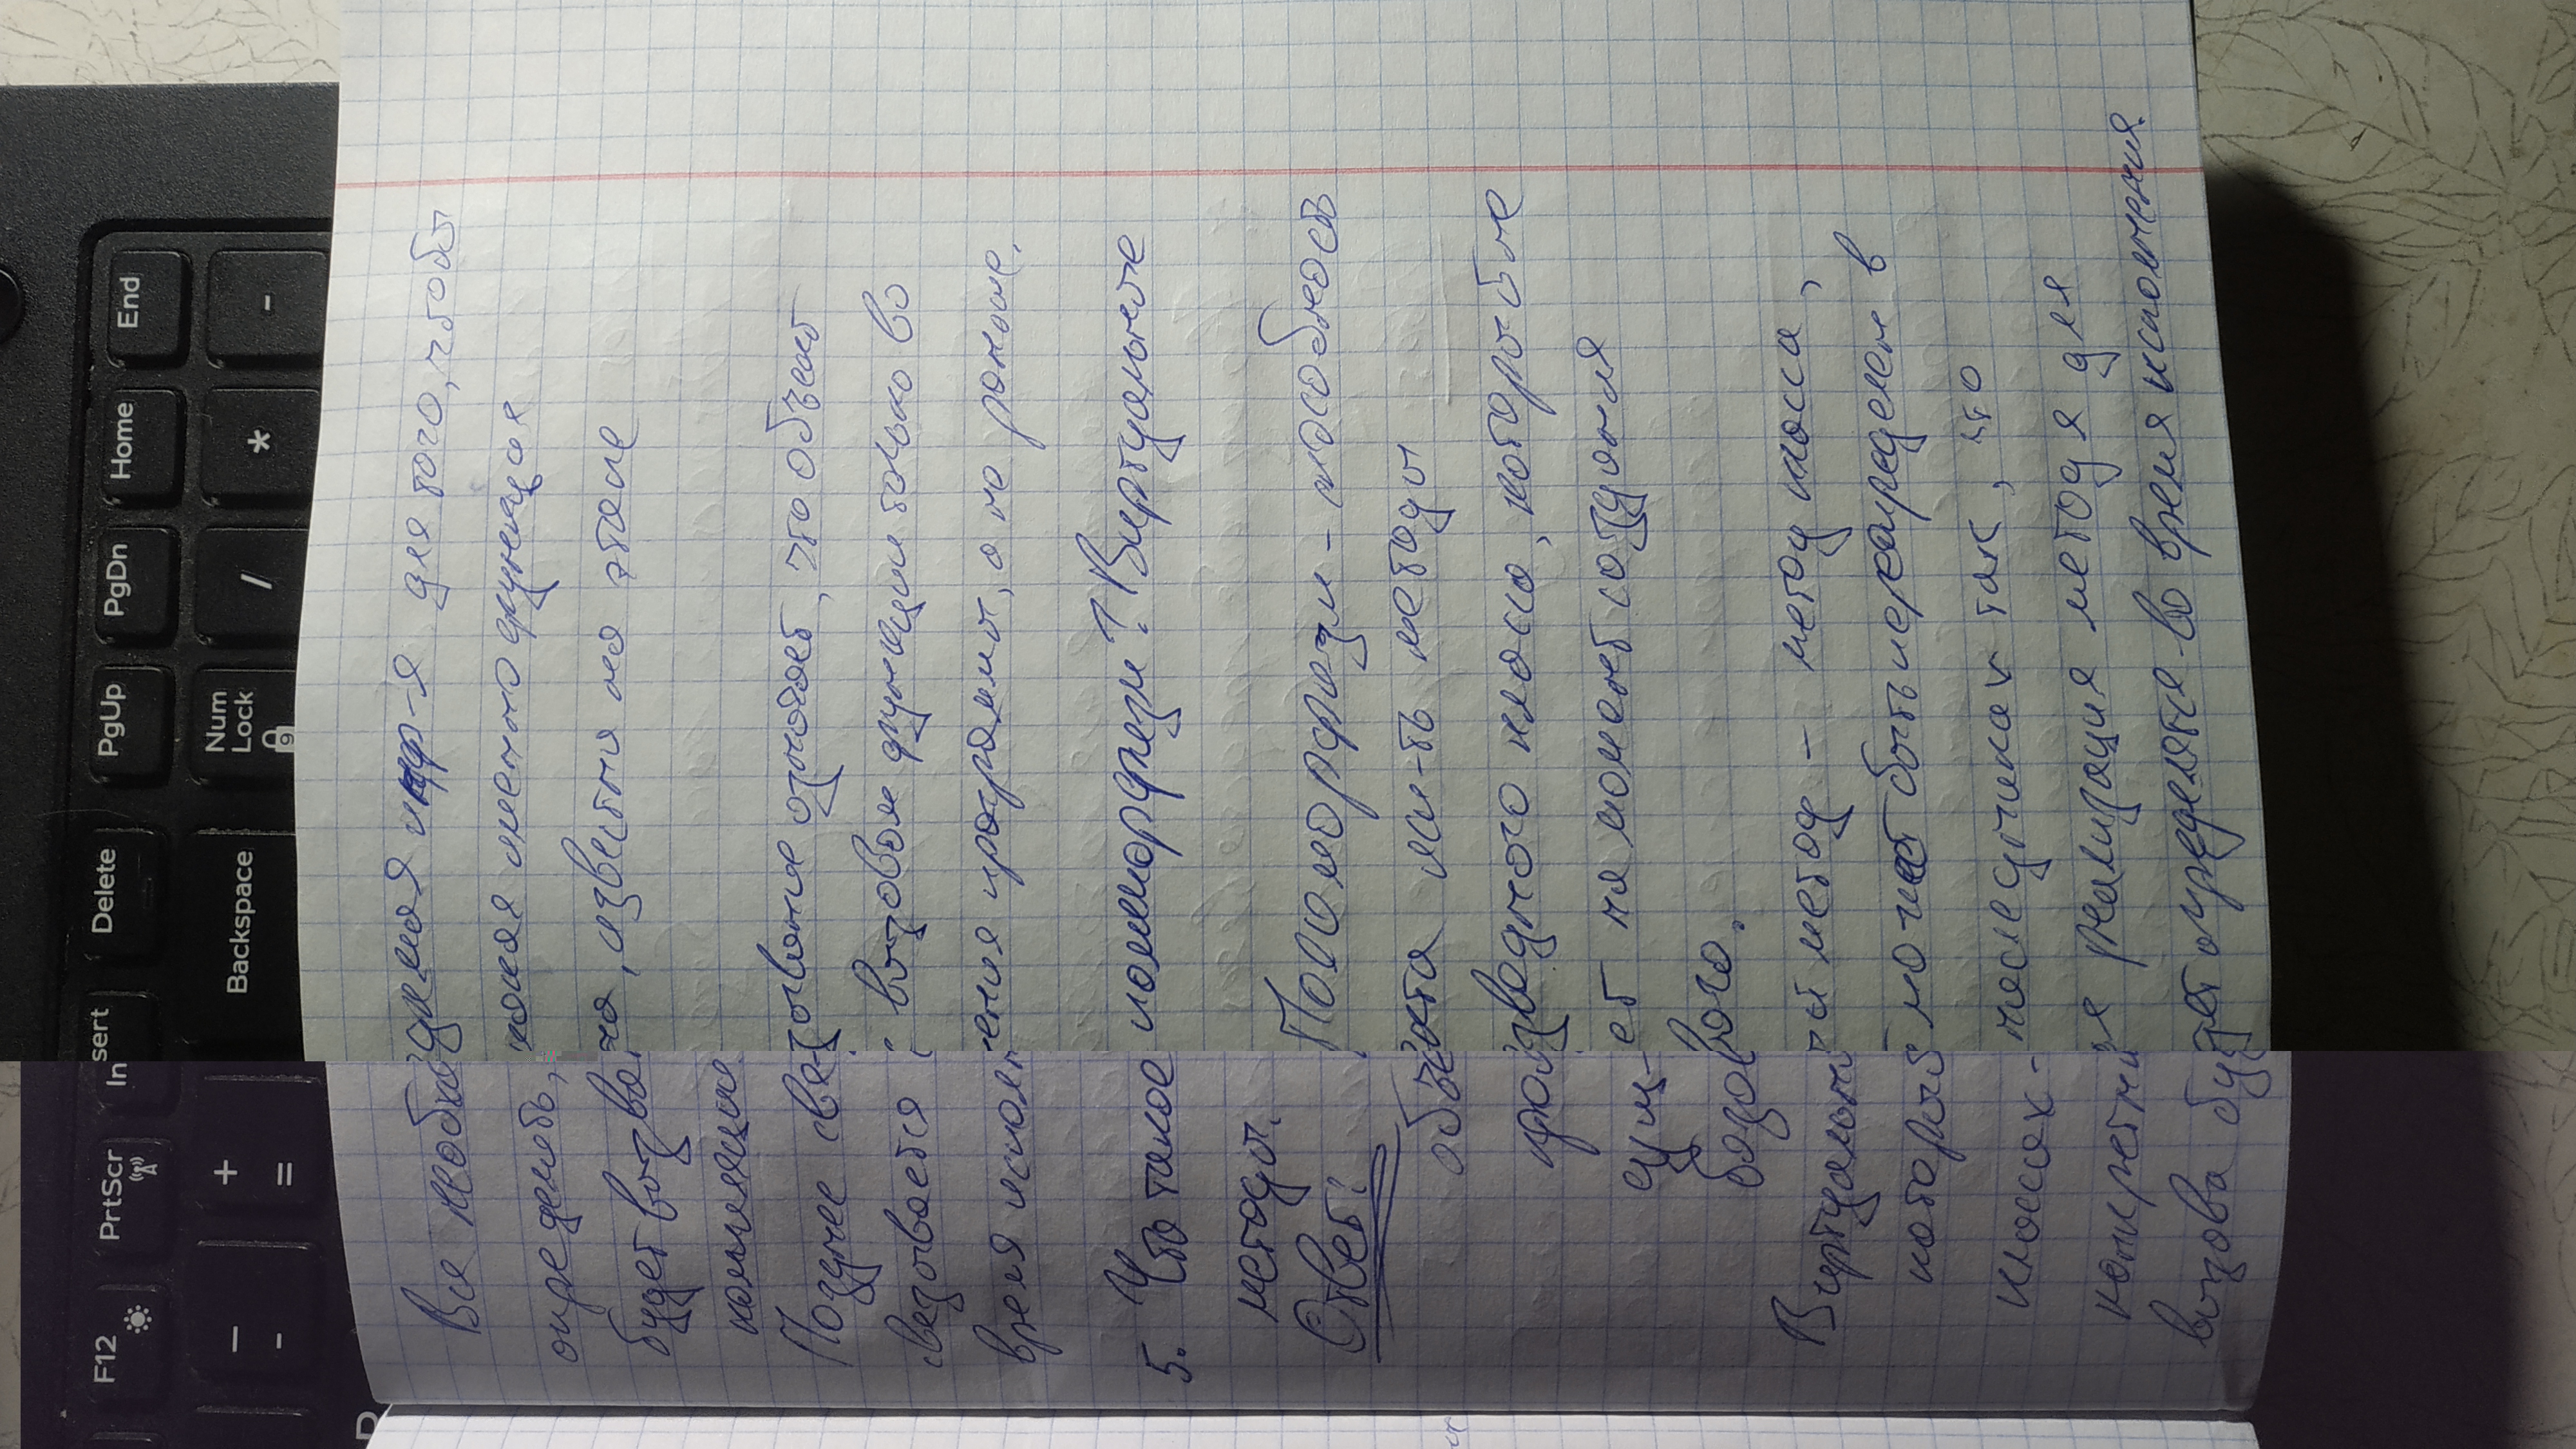 F12 PrtScr Insert Delete PgUp PgDn Home End
— + Backspace Num Lock / * -
- = 9
Вся необходимая инф-я для того, чтобы
определить, какая именно функция
будет вызвана, известна на этапе
компиляции.
Позднее связывание означает, что объект
связывается с вызовом функции только во
время исполнения программы, а не раньше.
5. Что такое полиморфизм? Виртуальные
методы.
Ответ: Полиморфизм - способность
объекта исп-ть методы
производного класса, который не
сущ-ет на момент создания
базового.
Виртуальный метод - метод класса,
который может быть переопределен в
классах-наследниках так, что
конкретная реализация метода для
вызова будет определятся во время исполнения.